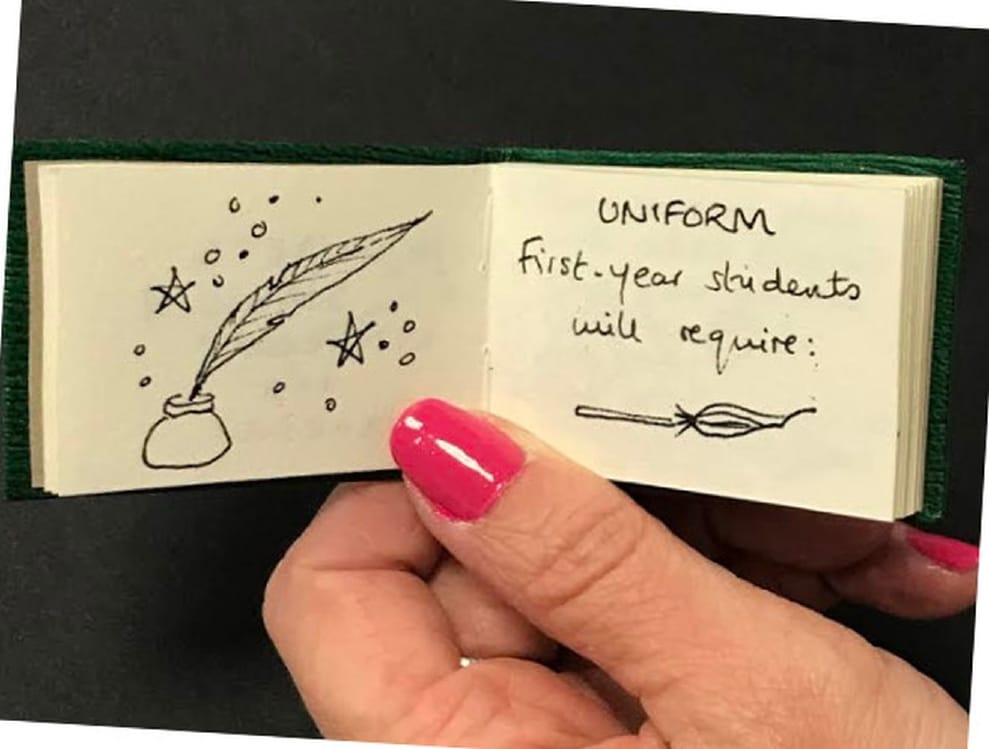 UNIFORM
First-year students
will require: